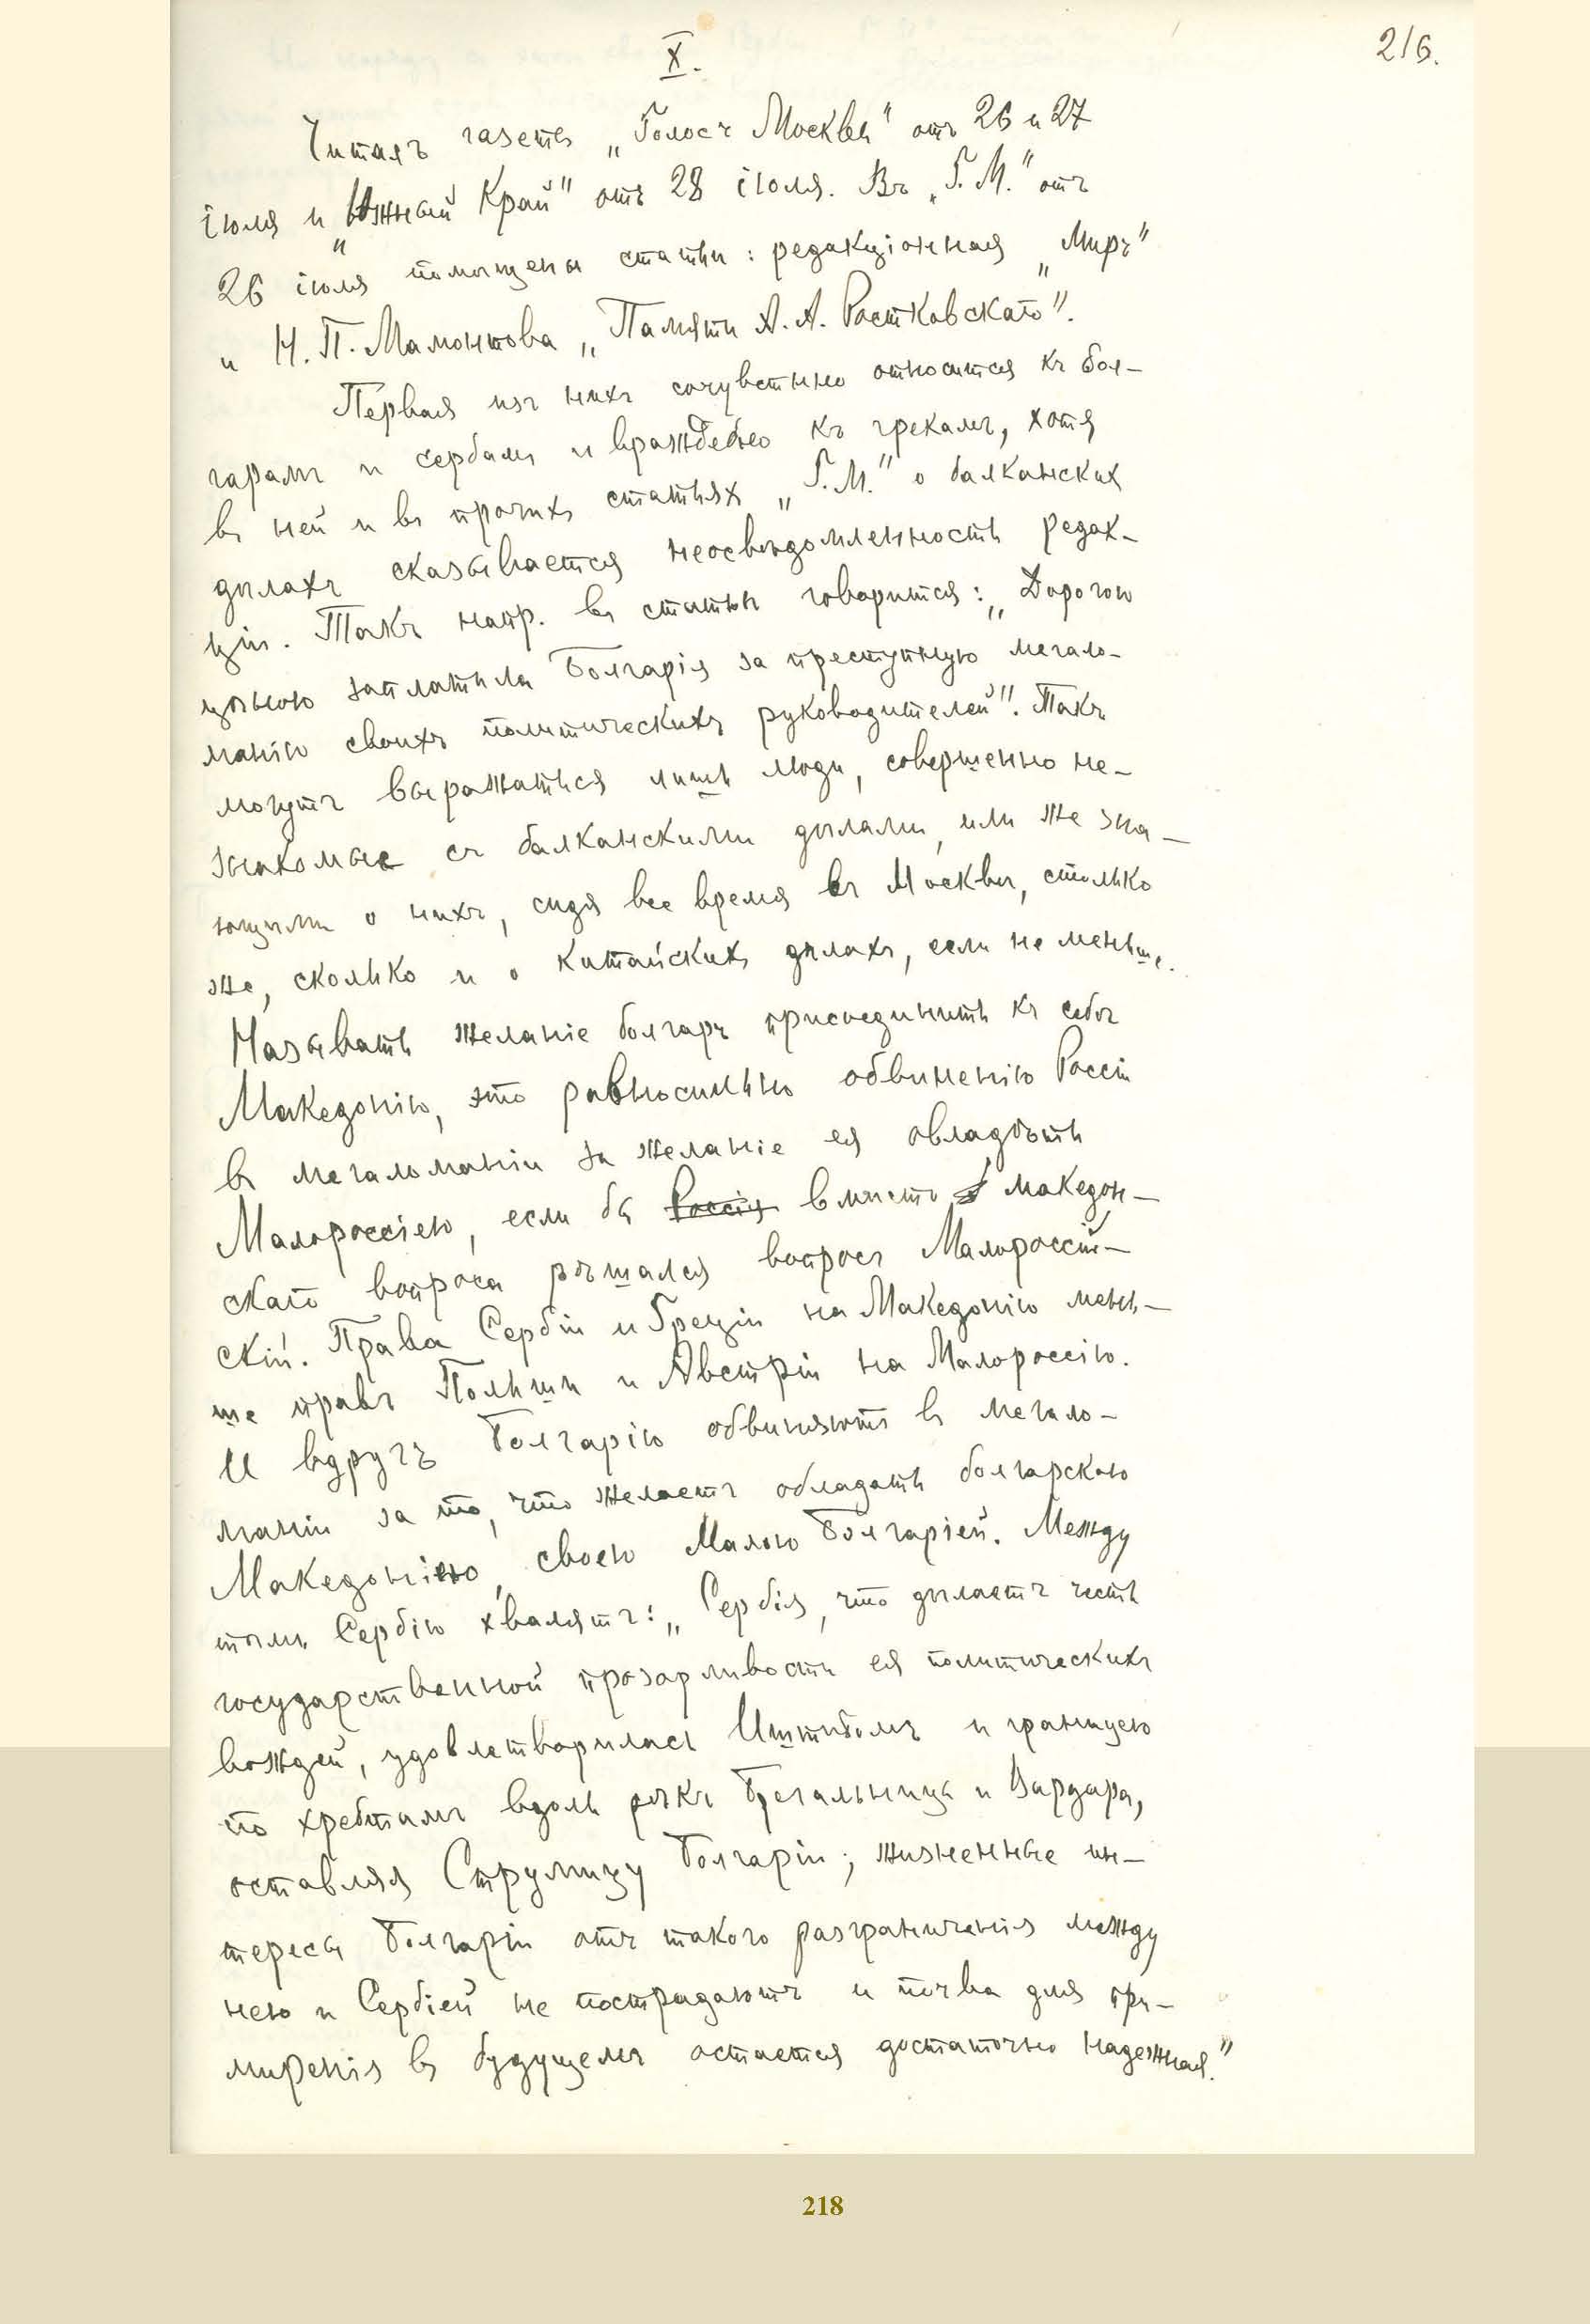 X.
216.
Читалъ газеты „Голосъ Москвы" отъ 26 и 27
іюля и „Южный Край" отъ 28 іюля. Въ „Г. М." отъ
26 іюля помѣщены статьи: редакціонная „Миръ"
и Н. П. Мамонтова „Памяти А. А. Ростковскаго".
Первая изъ нихъ сочувственно относится къ бол-
гарамъ и сербамъ и враждебно къ грекамъ, хотя
въ ней и въ прочихъ статьяхъ „Г. М." о балканскихъ
дѣлахъ сказывается неосвѣдомленность редак-
ціи. Такъ напр. въ статьѣ говорится: „Дорогою
цѣною заплатила Болгарія за преступную мегало-
манію своихъ политическихъ руководителей". Такъ
могутъ выражаться лишь люди, совершенно не-
знакомые съ балканскими дѣлами, или же зна-
ющими о нихъ, сидя все время въ Москвѣ, столько
же, сколько и о китайскихъ дѣлахъ, если не меньше.
Называть желаніе болгаръ присоединить къ себѣ
Македонію, это равносильно обвиненію Россіи
въ мегаломаніи за желаніе ея овладѣть
Малороссіею, если бы Россія вмѣсто македон-
скаго вопроса рѣшался вопросъ Малороссій-
скій. Права Сербіи и Греціи на Македонію мень-
ше правъ Польши и Австріи на Малороссію.
И вдругъ Болгарію обвиняютъ въ мегало-
маніи за то, что желаетъ обладать болгарскою
Македоніею, своею Малою Болгаріей. Между
тѣмъ Сербію хвалятъ: „Сербія, что дѣлаетъ честь
государственной прозорливости ея политическихъ
вождей, удовлетворилась Иштибомъ и границею
по хребтамъ вдоль рѣкъ Брегальница и Вардара,
оставляя Струмицу Болгаріи; жизненные ин-
тересы Болгаріи отъ такого разграниченія между
нею и Сербіей не пострадаютъ и почва для при-
миренія въ будущемъ остается достаточно надежная."
218